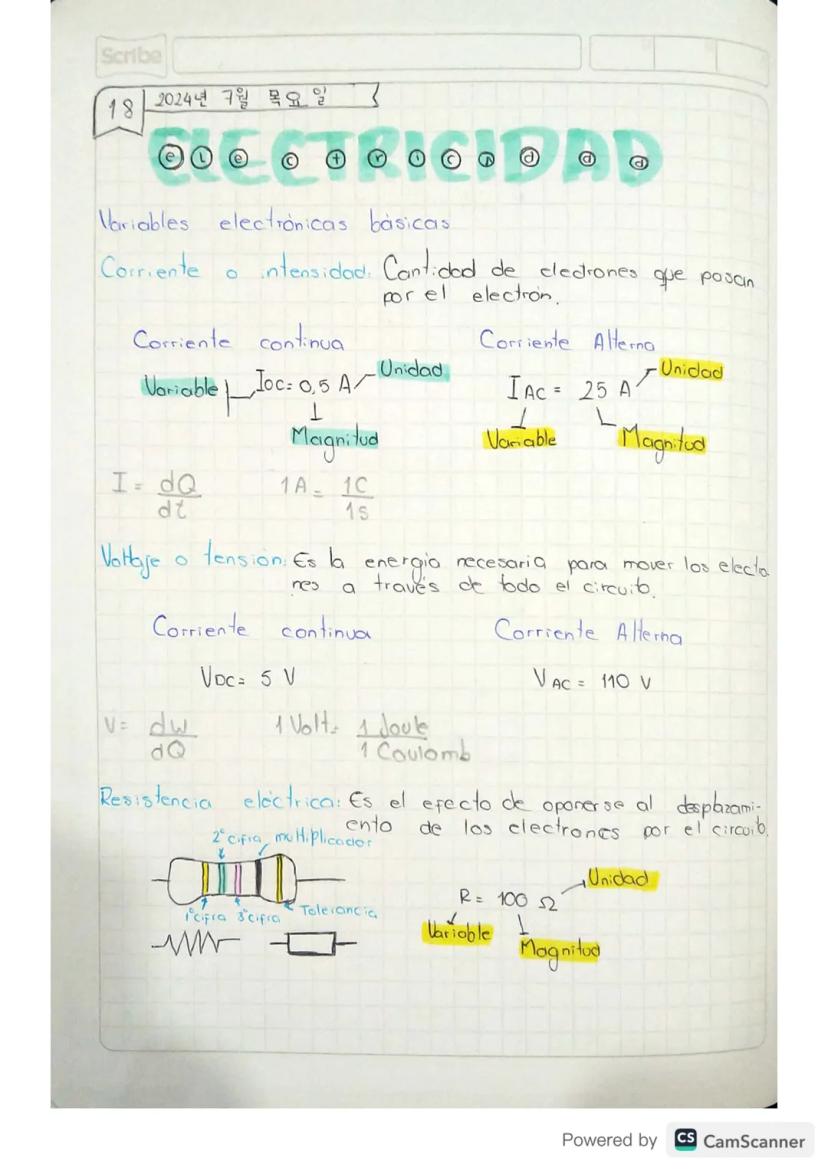 Scribe
18 2024년 7월 목요일
ELECTRICIDAD
electricidad
Variables electrónicas básicas
Corriente o intensidad: Cantidad de electrones que pasan
por el electrón.
Corriente continua Corriente Alterna
Variable IDC= 0,5 A Unidad
Magnitud
IAC = 25 A Unidad
Variable Magnitud
I = dQ/dt 1A = 1C/1s
Voltaje o tensión: Es la energía necesaria para mover los electo
nes a través de todo el circuito.
Corriente continua Corriente Alterna
VDC= 5 V VAC = 110 V
V= dw/dQ 1 Volt= 1 Joule/1 Coulomb
Resistencia eléctrica: Es el efecto de oponerse al desplazami-
ento de los electrones por el circuito.
2° cifra multiplicador
1° cifra 3° cifra Tolerancia
R= 100 Ω Unidad
Variable Magnitud
Powered by CS CamScanner